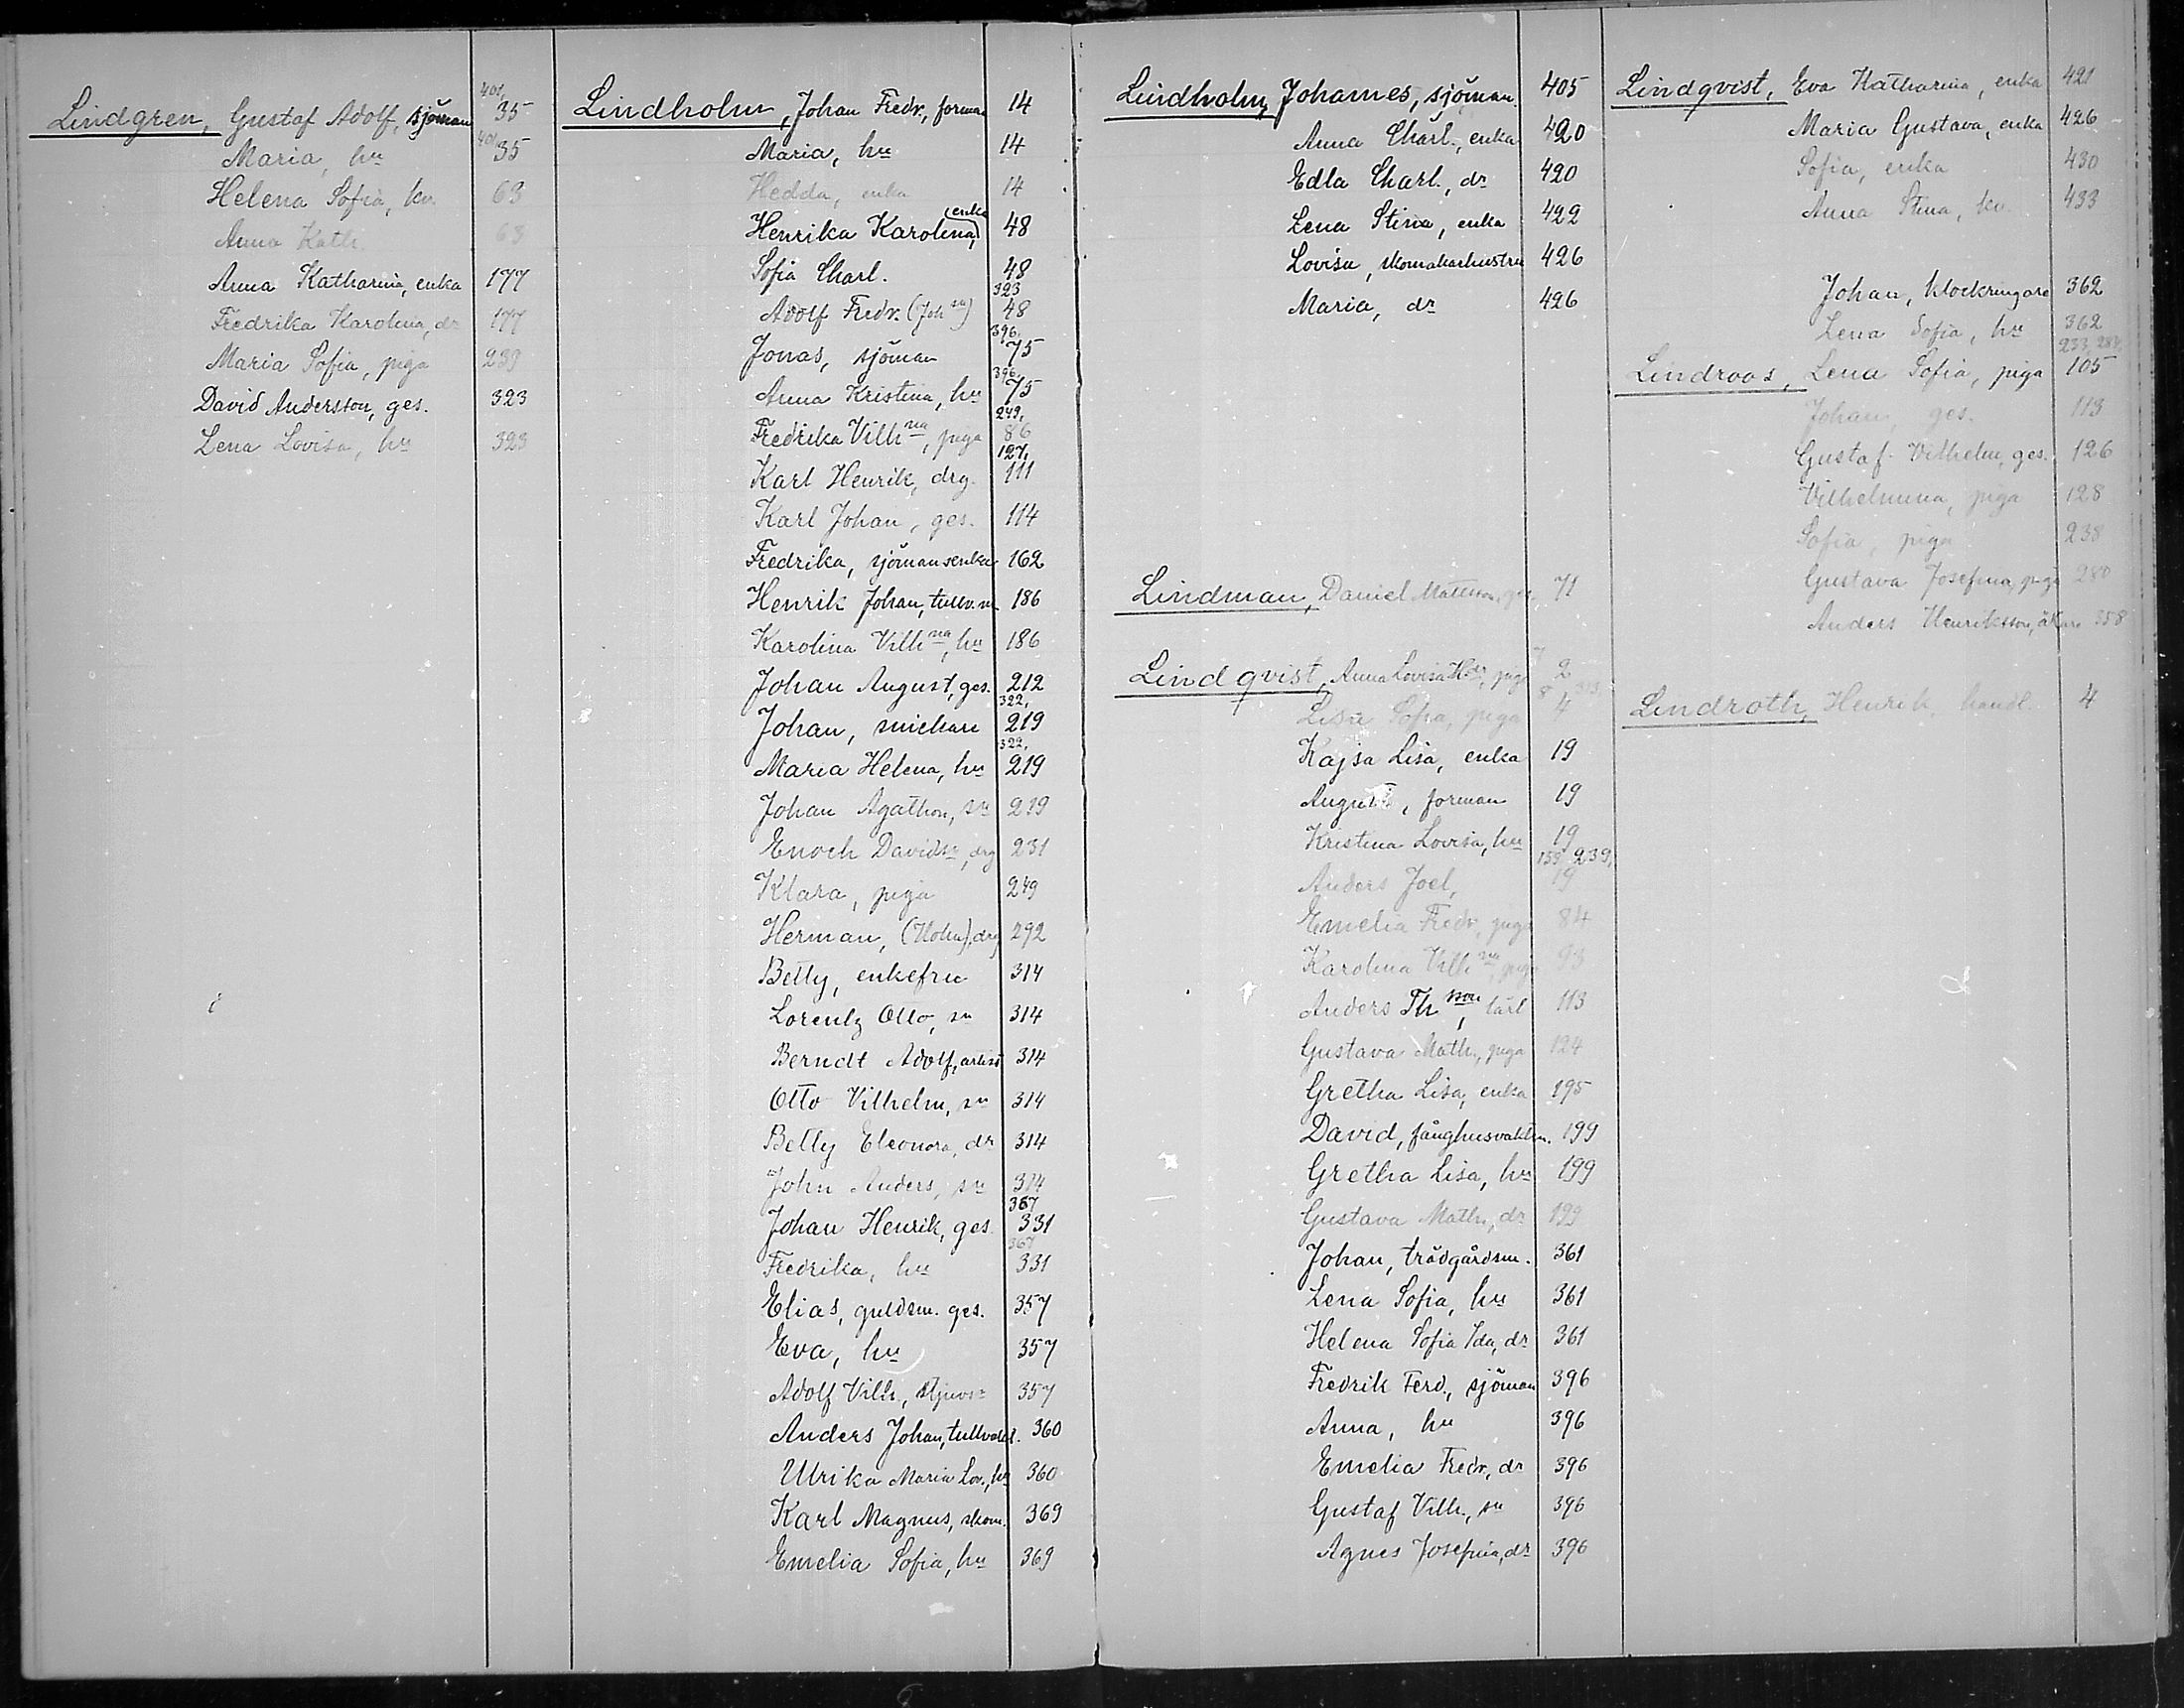 Lindgren, Gustaf Adolf, sjöman 401, 35
Maria, hu 401, 35
Helena Sofia, kv. 63
Anna Kath. 63
Anna Katharina, enka 177
Fredrika Karolina, dr 177
Maria Sofia, piga 239
David Andersson, ges. 323
Lena Lovisa, hu 323
Lindholm, Johan Fredr., forman 14
Maria, hu 14
Hedda, enka 14
Henrika Karolina, enka 48
Sofia Charl. 48
Adolf Fredr. (Joh sn) 323 48
Jonas, sjöman 396, 75
Anna Kristina, hu 396, 75
Fredrika Vilh na, piga 249, 86
Karl Henrik, drg. 127, 111
Karl Johan, ges. 114
Fredrika, sjömansenka 162
Henrik Johan, tullv.m 186
Karolina Vilh na, hu 186
Johan August, ges. 212
Johan, snickare 322, 219
Maria Helena, hu 322, 219
Johan Agathon, sn 219
Enoch Davidsn, drg 231
Klara, piga 249
Herman, drg 292
Betty, enkefru 314
Lorentz Otto, sn 314
Berndt Adolf, artist 314
Otto Vilhelm, sn 314
Betty Eleonora, dr 314
John Anders, sn 314
Johan Henrik, ges. 367 331
Fredrika, hu 367 331
Elias, guldsm. ges. 357
Eva, hu 357
Adolf Vilh., styvsn 357
Anders Johan, tullvakt. 360
Ulrika Maria Lov., hu 360
Karl Magnus, skom. 369
Emelia Sofia, hu 369
Lindholm, Johannes, sjöman. 405
Anna Charl., enka 420
Edla Charl., dr 420
Lena Stina, enka 422
Lovisa, skomakarhustru 426
Maria, dr 426
Lindman, Daniel Mattsson, ges. 71
Lindqvist, Anna Lovisa Hdr, piga 7 2
Lisa Sofia, piga 8 4
Kajsa Lisa, enka 19
August, forman 19
Kristina Lovisa, hu 19
Anders Joel, 159, 239, 19
Emelia Fredr., piga 84
Karolina Vilh na, piga 93
Anders Th son, lärl 113
Gustava Math., piga 124
Gretha Lisa, enka 195
David, fånghusvaktm. 199
Gretha Lisa, hu 199
Gustava Math., dr 199
Johan, trädgårdsm. 361
Lena Sofia, hu 361
Helena Sofia Ida, dr 361
Fredrik Ferd., sjöman 396
Anna, hu 396
Emelia Fredr., dr 396
Gustaf Vilh., sn 396
Agnes Josefina, dr 396
Lindqvist, Eva Katharina, enka 421
Maria Gustava, enka 426
Sofia, enka 430
Anna Stina, kv. 433
Johan, klockringare 362
Lena Sofia, hu 362
Lindroos, Lena Sofia, piga 233, 283, 105
Johan, ges. 113
Gustaf Vilhelm, ges. 126
Vilhelmina, piga 128
Sofia, piga 238
Gustava Josefina, piga 280
Anders Henriksson, åkare 358
Lindroth, Henrik, handl. 4